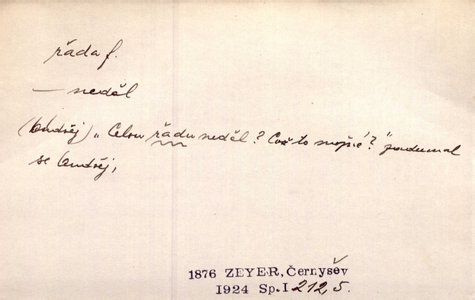 řáda f.
— neděl
(Ondřej) „Celou řádu neděl? Což to možné?" podumal
se Ondřej,
1876 ZEYER, Černyšev
1924 Sp. I 212,5.